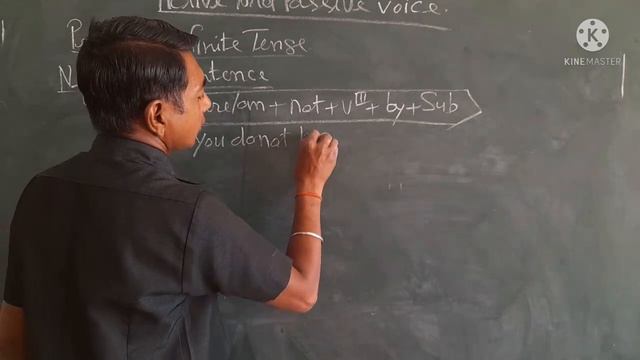 Active and Passive voice.
finite Tense
tence
are/am + not + V III + by + Sub
you do not
K
KINEMASTER